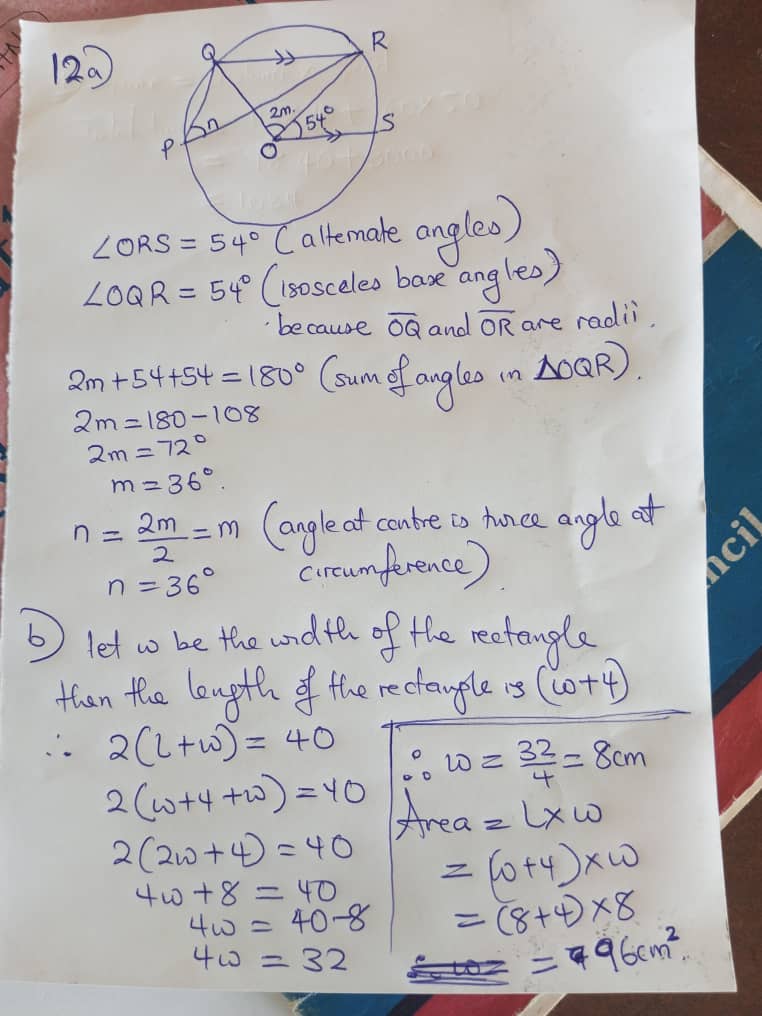 12a)
Q
R
2m
54°
n
P
O
S
∠ORS = 54° (alternate angles)
∠OQR = 54° (isosceles base angles)
because OQ and OR are radii.
2m + 54 + 54 = 180° (sum of angles in ΔOQR).
2m = 180 - 108
2m = 72°
m = 36°.
n = 2m/2 = m (angle at centre is twice angle at
circumference)
n = 36°
b) let w be the width of the rectangle
then the length of the rectangle is (w+4)
∴ 2(l+w) = 40
2(w+4+w) = 40
2(2w+4) = 40
4w + 8 = 40
4w = 40-8
4w = 32
∴ w = 32/4 = 8cm
Area = L x w
= (w+4) x w
= (8+4) x 8
= 96cm².
ncil